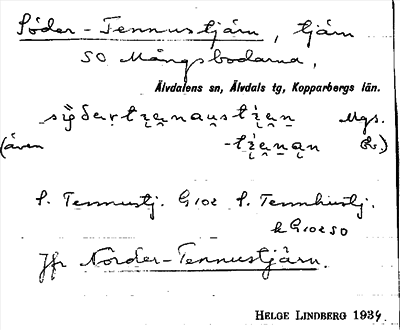 Söder-Tennustjärn, tjärn
SO Mångsbodarna,
Älvdalens sn, Älvdals tg, Kopparbergs län.
Mgs.
(även
S. Tennustj. G102 S. Tennhustj.
k G102 SO
Jfr Norder-Tennustjärn.
HELGE LINDBERG 1934.